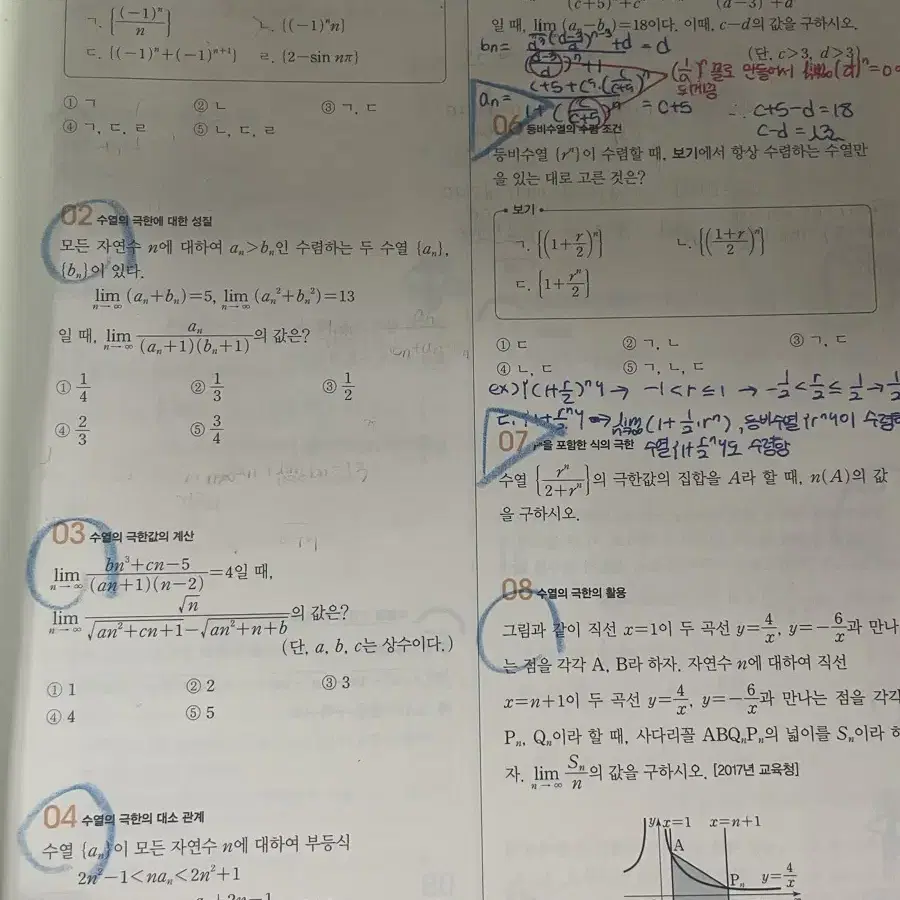 ㄱ. {(-1)ⁿ/n} ㄴ. {(-1)ⁿn}
ㄷ. {(-1)ⁿ+(-1)ⁿ⁺¹} ㄹ. {2-sin nπ}
① ㄱ ② ㄴ ③ ㄱ, ㄷ
④ ㄱ, ㄷ, ㄹ ⑤ ㄴ, ㄷ, ㄹ
02 수열의 극한에 대한 성질
모든 자연수 n에 대하여 aₙ>bₙ인 수렴하는 두 수열 {aₙ},
{bₙ}이 있다.
lim n→∞ (aₙ+bₙ)=5, lim n→∞ (aₙ²+bₙ²)=13
일 때, lim n→∞ aₙ/((aₙ+1)(bₙ+1))의 값은?
① 1/4 ② 1/3 ③ 1/2
④ 2/3 ⑤ 3/4
03 수열의 극한값의 계산
lim n→∞ (bn³+cn-5)/((an+1)(n-2))=4일 때,
lim n→∞ √n/(√(an²+cn+1)-√(an²+n+b))의 값은?
(단, a, b, c는 상수이다.)
① 1 ② 2 ③ 3
④ 4 ⑤ 5
04 수열의 극한의 대소 관계
수열 {aₙ}이 모든 자연수 n에 대하여 부등식
2n²-1<naₙ<2n²+1
일 때, lim n→∞ (aₙ-bₙ)=18이다. 이때, c-d의 값을 구하시오.
(단, c>3, d>3)
bₙ= +d = d
aₙ= = c+5
∴ c+5-d=18
c-d=13
06 등비수열의 수렴 조건
등비수열 {rⁿ}이 수렴할 때, 보기에서 항상 수렴하는 수열만
을 있는 대로 고른 것은?
보기
ㄱ. {(1+r/2)ⁿ} ㄴ. {((1+r)/2)ⁿ}
ㄷ. {1+rⁿ/2}
① ㄷ ② ㄱ, ㄴ ③ ㄱ, ㄷ
④ ㄴ, ㄷ ⑤ ㄱ, ㄴ, ㄷ
ex) {(1+r/2)ⁿ} → -1<r≤1 → -1/2<r/2≤1/2 →
ㄷ. {1+rⁿ/2} ⇒ lim n→∞ (1+1/2·rⁿ), 등비수열 {rⁿ}이 수렴
수열 {1+rⁿ/2}도 수렴함
07 rⁿ을 포함한 식의 극한
수열 {rⁿ/(2+rⁿ)}의 극한값의 집합을 A라 할 때, n(A)의 값
을 구하시오.
08 수열의 극한의 활용
그림과 같이 직선 x=1이 두 곡선 y=4/x, y=-6/x과 만나
는 점을 각각 A, B라 하자. 자연수 n에 대하여 직선
x=n+1이 두 곡선 y=4/x, y=-6/x과 만나는 점을 각각
Pₙ, Qₙ이라 할 때, 사다리꼴 ABQₙPₙ의 넓이를 Sₙ이라 하
자. lim n→∞ Sₙ/n의 값을 구하시오. [2017년 교육청]
y x=1 x=n+1
A
Pₙ y=4/x